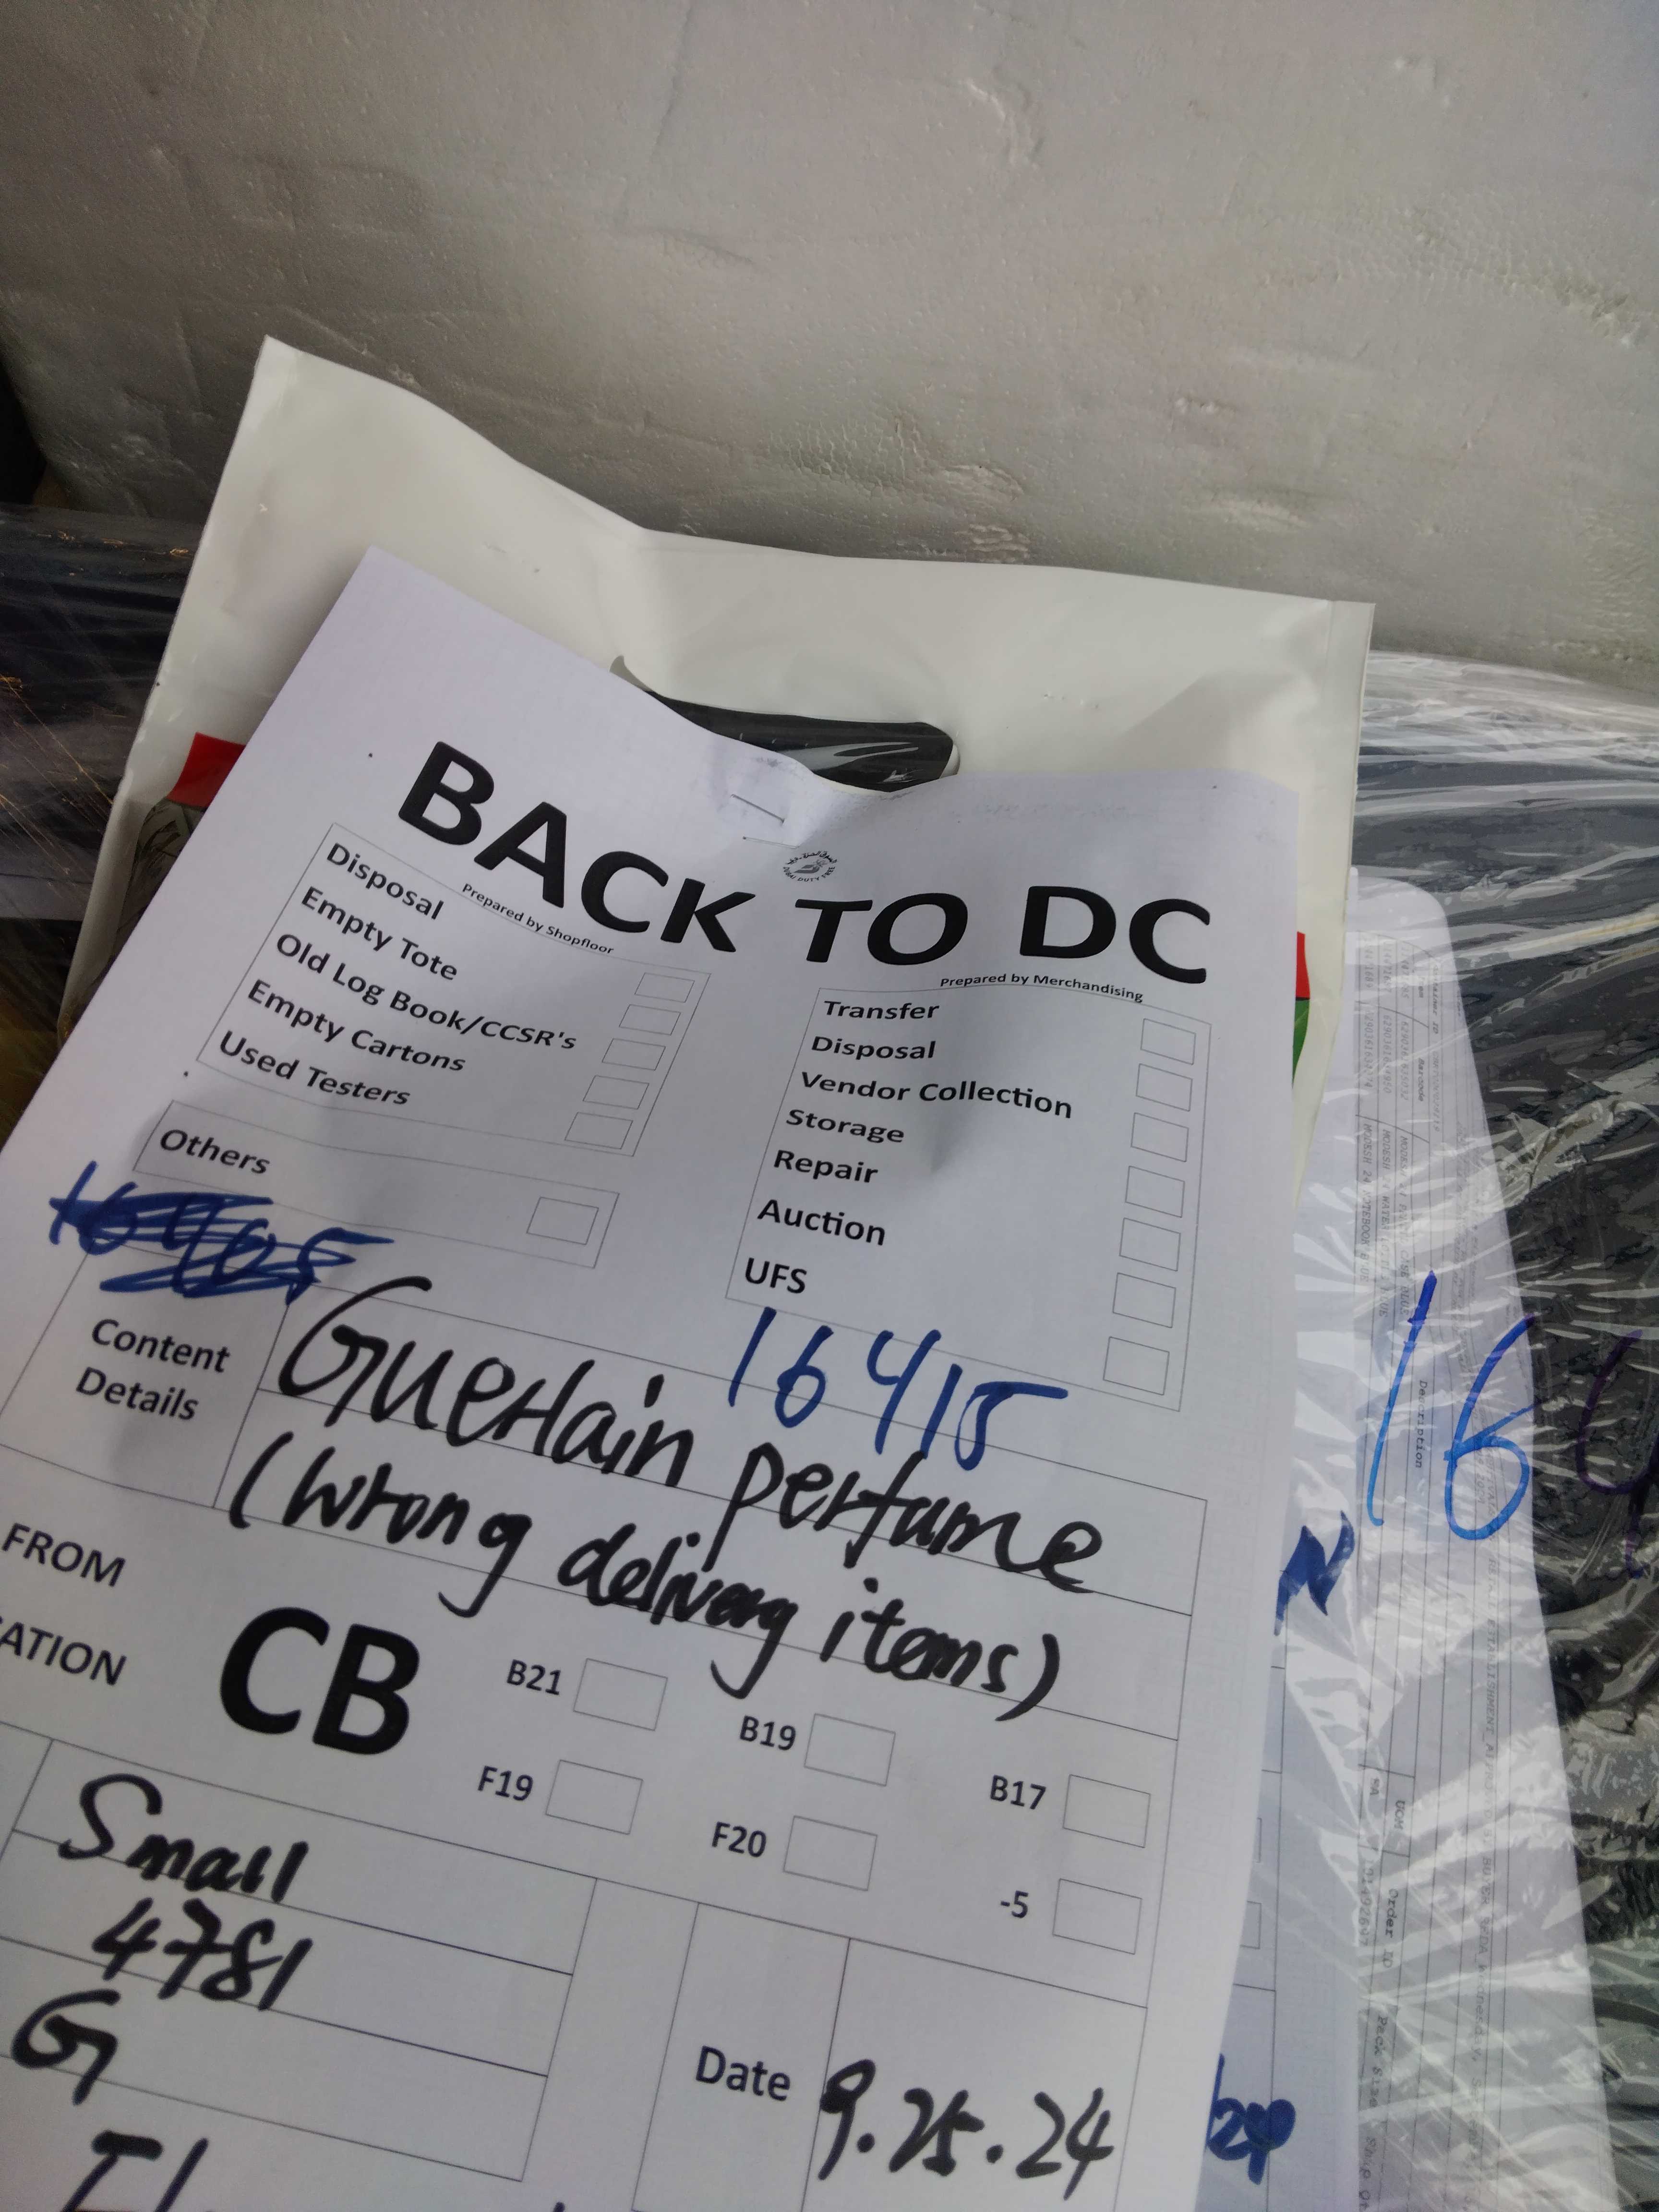 BACK TO DC
DUBAI DUTY FREE
Prepared by Shopfloor
Disposal
Empty Tote
Old Log Book/CCSR's
Empty Cartons
Used Testers
Others
Prepared by Merchandising
Transfer
Disposal
Vendor Collection
Storage
Repair
Auction
UFS
16405
16415
Content
Details
Guerlain perfume
(Wrong delivery items)
FROM
CATION
CB
B21
B19
B17
F19
F20
-5
Small
4781
G
Date
9.25.24
164
Description
Barcode
UOM
Order ID
Pack Size